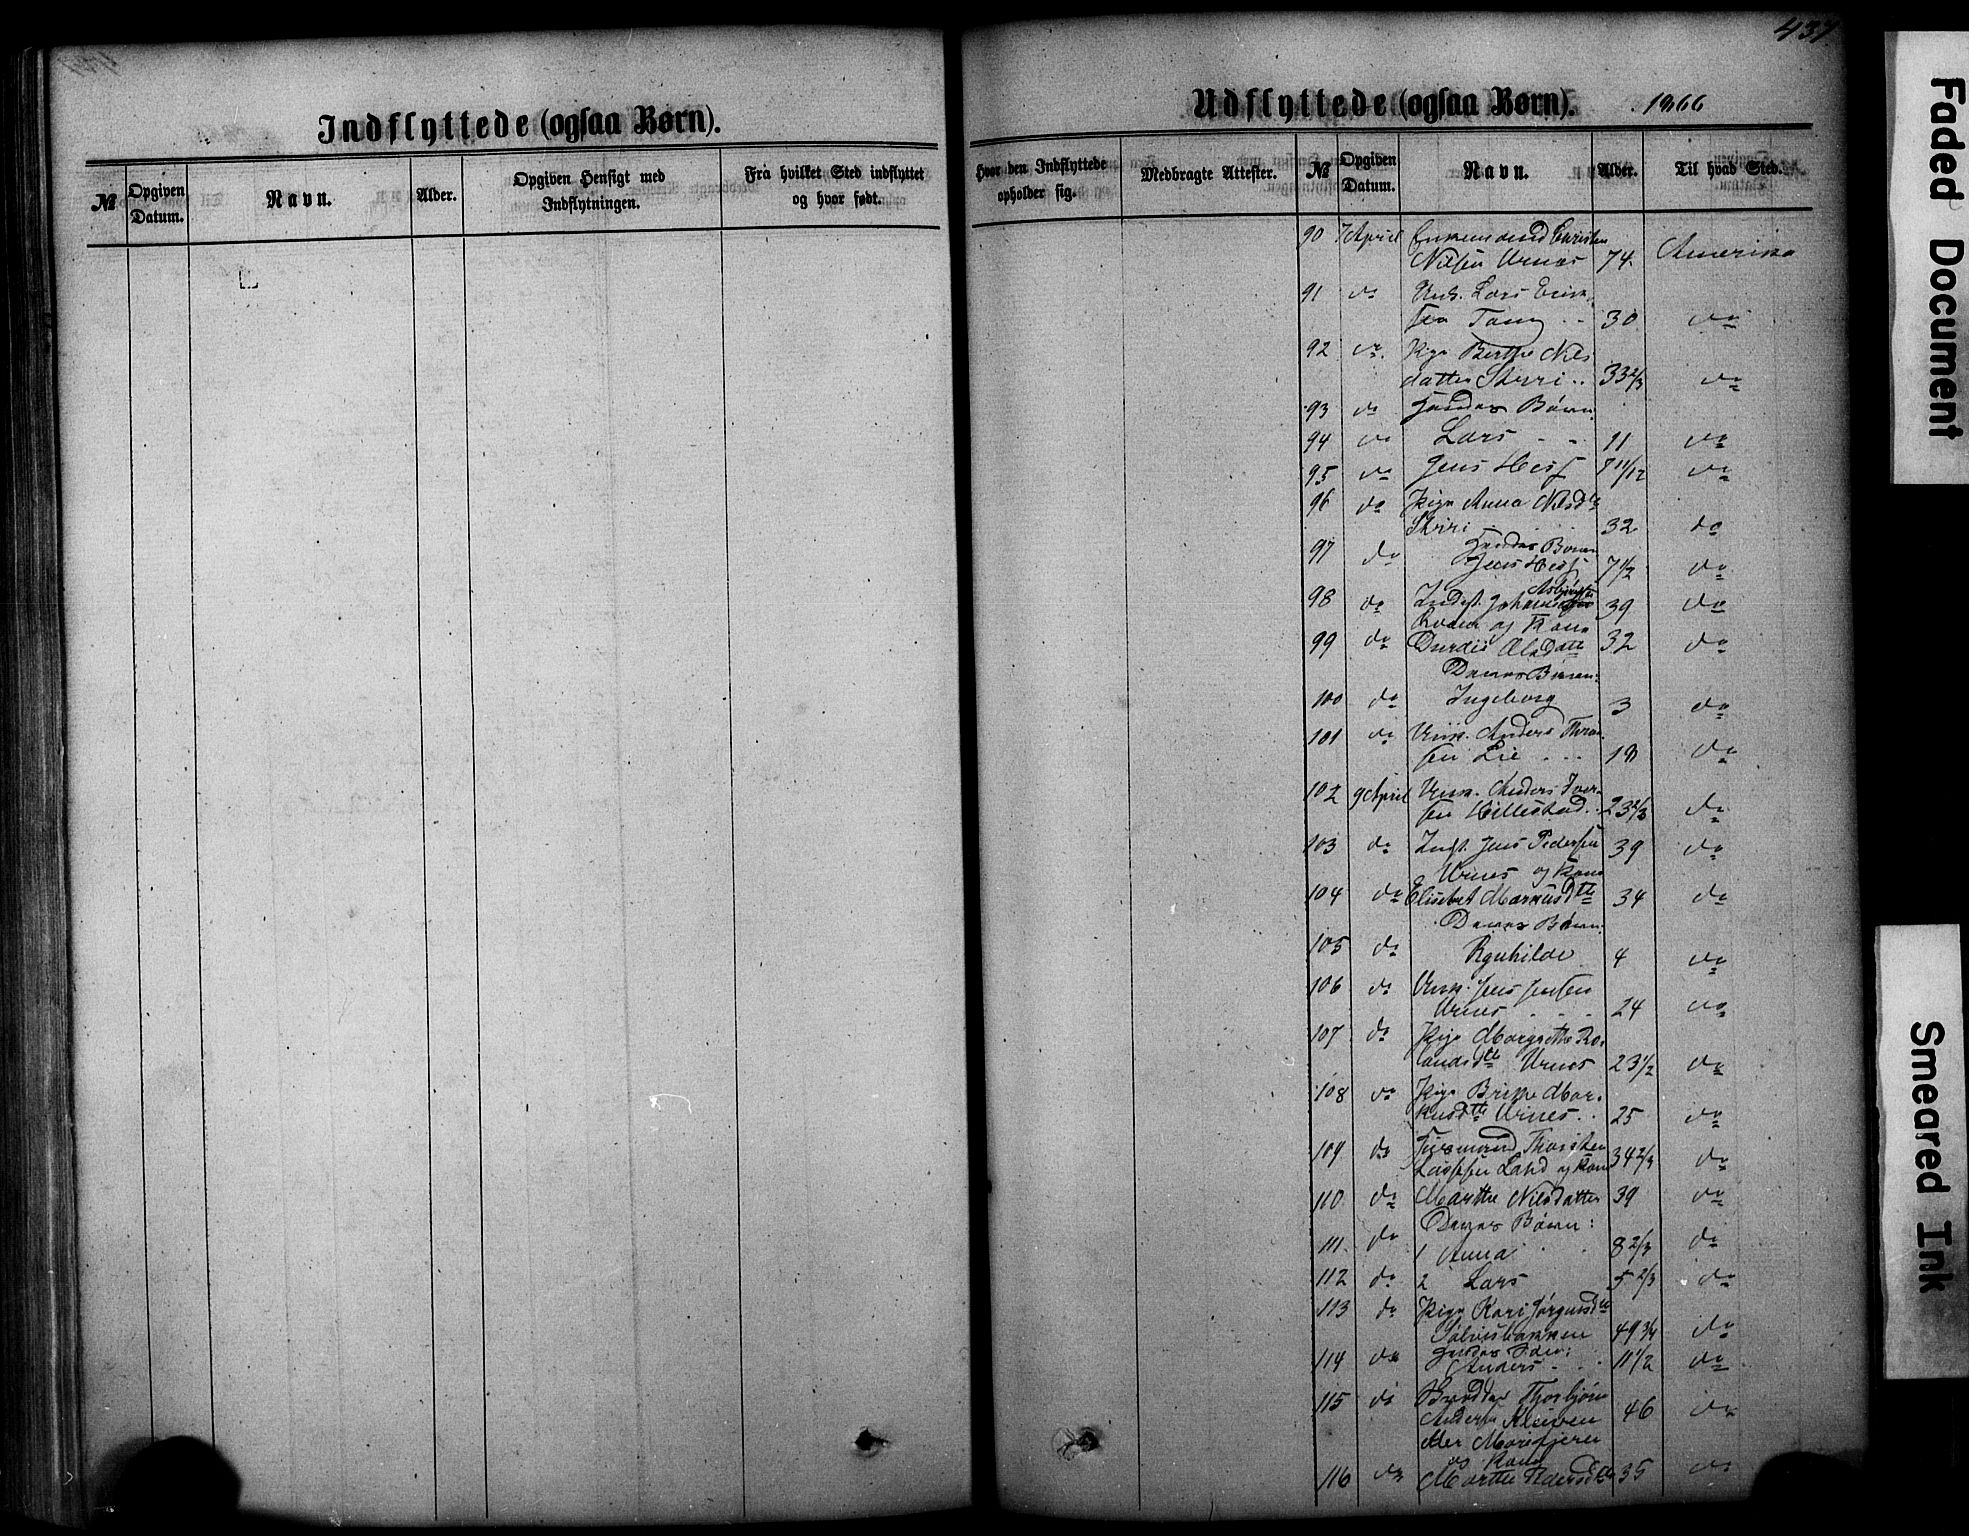 437.
Indflyttede (ogsaa Børn).
№
Opgiven Datum.
Navn.
Alder.
Opgiven Hensigt med Indflytningen.
Fra hvilket Sted indflyttet og hvor født.
Hvor den Indflyttede opholder sig.
Medbragte Attester.
Udflyttede (ogsaa Børn). 1866
№
Opgiven Datum.
Navn.
Alder.
Til hvad Sted.
90 7 April Enkemand Christen
Nilsen Urnes 74. Amerika
91 do Unk. Lars Erik-
sen Tang 30 do
92 do Pige Berthe Nils
datter Skrri 33 2/3 do
93 do Hendes Børn
94 do Lars 11 do
95 do Jens Hess 7 11/12 do
96 do Pige Anna Nilsdtr
Skrri 32 do
97 do Hendes Børn
Jens Hess 7 1/2 do
98 do Indst. Johannes Asbjørnsen 39 do
og Kone
99 do Olsdattr 32 do
Deres Børn:
100 do Ingeborg 3 do
101 do Unk. Anders
sen Lie 18 do
102 9 April Unk. Anders Iver-
sen Hillestad 23 2/3 do
103 do Indst. Jens Pedersen 39 do
Urnes og Kone
104 do Elisabet Markusdtr 34 do
Deres Børn:
105 do Ragnhilde 4 do
106 do Unk. Jens Jensen
Urnes 24 do
107 do Pige Margrethe Ro-
landsdtr Urnes 23 1/2 do
108 do Pige Britha Mar-
kusdtr Urnes 25 do
109 do Thorsten
Lassesen Lahd og Kone 34 2/3 do
110 do Marthe Nilsdatter 39 do
Deres Børn:
111. do 1 Anna 8 2/3 do
112 do 2 Lars 5 2/3 do
113 do Pige Kari Jørgensdtr
49 3/4 do
114 do hendes Søn:
Anders 11 1/2 do
115 do Thorbjørn
Anders. Kleiven 46 do
eller Marifjeren
og Kone
116 do Marthe Pedersdtr 35 do
Faded Document
Smeared Ink